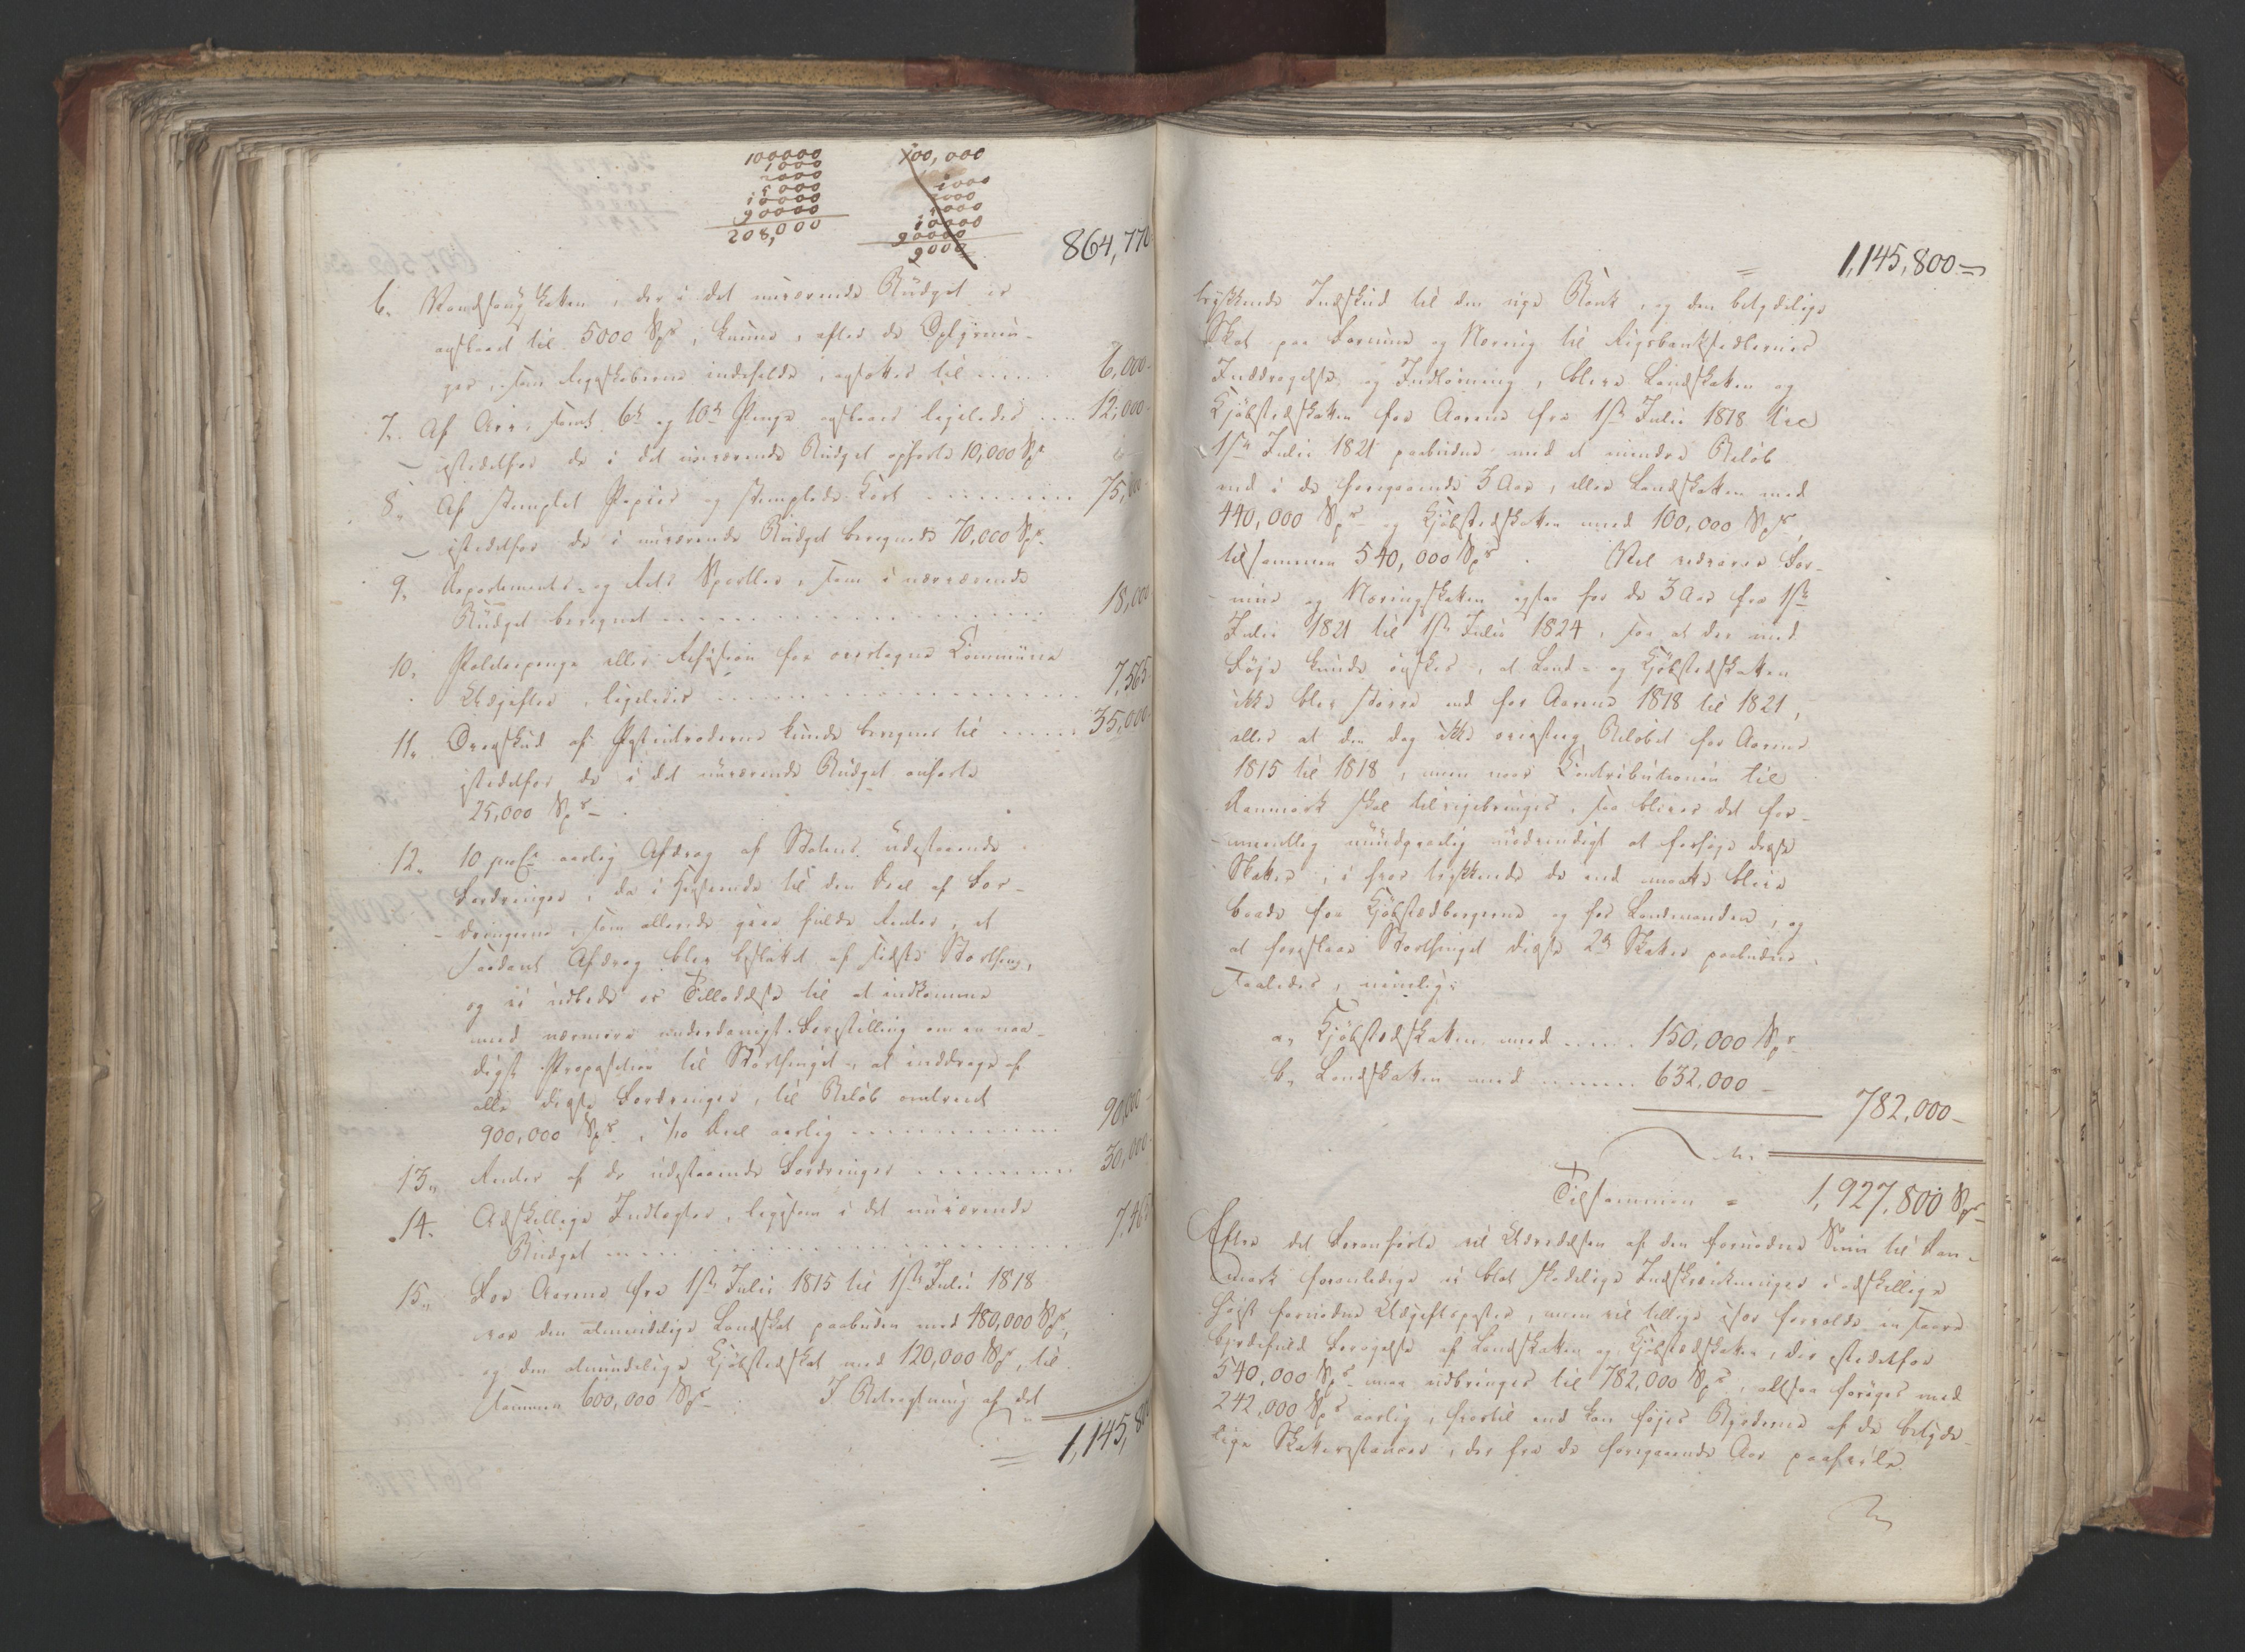 100000
1000
2000
5000
10000
90000
208,000
100,000
1000
2000
5000
10000
90000
9000
864,770
6. Vandfangskatten, der i det nuværende Büdget er
anslaaet til 5000 Spr, kunne, efter de Oplysnin-
ger, som Regnskaberne indeholde, ansættes til ..... 6,000-
7. Af Arv, samt 6te og 10de Penge anslaaes ligeledes .... 12,000-
istedetfor de i det nuværende Büdget opførte 10,000 Spr
8. Af stemplet Papiir og stemplede Kort ......... 75,000
istedetfor de i nuværende Büdget beregnede 70,000 Spr-
9. Departements- og Rets Sportler, som i nærværende
Büdget beregnet ............ 18,000
10. Politiepenge eller Refusion for overtagne Communers
Udgifter, ligeledes ............ 7,565
11. Overskud af Postindtræderne kunde beregnes til ...... 35,000-
istedetfor de i det nuværende Büdget anførte
25,000 Spr-
12. 10 proCt aarlig Afdrag af Statens udestaaende
Fordringer, da i Henseende til den Deel af For-
dringerne, som allerede gaae fulde Renter, et
saadant Afdrag blev besluttet af sidste Storthing,
og vi udbede os Tilladelse til at indkomme
med nærmere underdanigst Forestilling om en naa-
digst Proposition til Storthinget, at inddrage af
alle disse Fordringer, til Beløb omtrent
900,000 Spr, 1/10 Deel aarlig ............ 90,000-
13. Renter af de udestaaende Fordringer ......... 30,000-
14. Adskillige Indtægter, ligesom i det nuværende
Büdget ............ 7,465
15. For Aarene fra 1ste Julii 1815 til 1ste Julii 1818
var den almindelige Landskat paabuden med 480,000 Spr,
og den almindelige Kjøbstedskat med 120,000 Spr, til
sammen 600,000 Spr- I Betragtning af det
= 1,145,800
= 1,145,800 =
trykkende Indskud til den nye Bank, og den betydelige
Skat paa Formue og Næring til Rigsbanksedlernes
Inddragelse og Indløsning, bleve Landskatten og
Kjøbstedskatten for Aarene fra 1ste Julii 1818 til
1ste Julii 1821 paabudne med et mindre Beløb
end i de foregaaende 3 Aar, eller Landskatten med
440,000 Spr og Kjøbstedskatten med 100,000 Spr,
tilsammen 540,000 Spr. Vel ophører For-
mue og Næringsskatten ogsaa for de 3 Aar fra 1ste
Julii 1821 til 1ste Julii 1824, saa at der med
Føje kunde ønskes, at Land- og Kjøbstedskatten
ikke blev større end for Aarene 1818 til 1821,
eller at den dog ikke oversteeg Beløbet for Aarene
1815 til 1818, men naar Contributionen til
Danmark skal tilvejebringes, saa bliver det for-
meentlig uundgaaelig nødvendigt at forhøje disse
Skatter, i hvor trykkende de end maatte blive
baade for Kjøbstædborgerne og for Landmanden, og
at foreslaae Storthinget disse 2de Skatter paabudne
saaledes, nemlig:
a, Kjøbstedskatten med ..... 150,000 Spr-
b, Landskatten med ...... 632,000 -
782,000-
Tilsammen = 1,927,800 Spr-
Efter det Foranførte vil Udredelsen af den fornødne Sum til Dan-
mark foranledige ei blot skadelige Indskrænkninger i adskillige
høist fornødne Udgiftsposter, men vil tillige især forvolde en saare
byrdefuld Forøgelse af Landskatten og Kjøbstedskatten, der istedetfor
540,000 Spr maa udbringes til 782,000 Spr, altsaa forøges med
242,000 Spr aarlig, hvortil end kan føjes Byrderne af de betyde-
lige Skatterestancer, der fra de foregaaende Aar paahvile